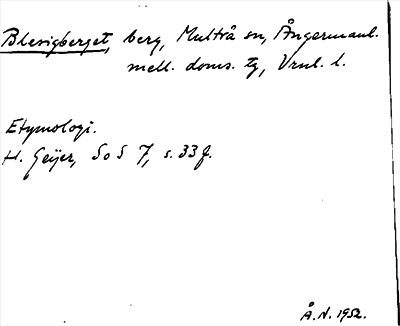 Blesigberget, berg, Multrå sn, Ångermanl.
mell. doms. tg, Vrnl. l.
Etymologi.
H. Geijer, SoS 7, s. 33 f.
Å.N. 1952.